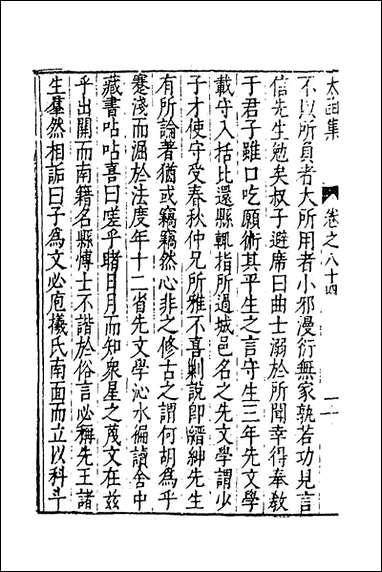 太函集
卷之八十四
十一
不以所負者大所用者小邪漫衍無家孰若功見言
信先生勉矣叔子避席曰曲士溺於所聞幸得奉教
于君子雖口吃願術其平生之言守生三年先文學
載守入括比還縣輒指所過城邑名之先文學謂少
子才使守受春秋仲兄所雅不喜剿說即縉紳先生
有所論著猶或竊竊然心非之修古之謂何胡為乎
蹇淺而溷於法度年十二省先文學沁水徧讀舍中
藏書呫呫喜曰嗟乎睹日月而知衆星之蔑文在兹
乎出關而南籍名縣博士不諧於俗言必稱先王諸
生羣然相訴曰子為文必庖犧氏南面而立以科斗